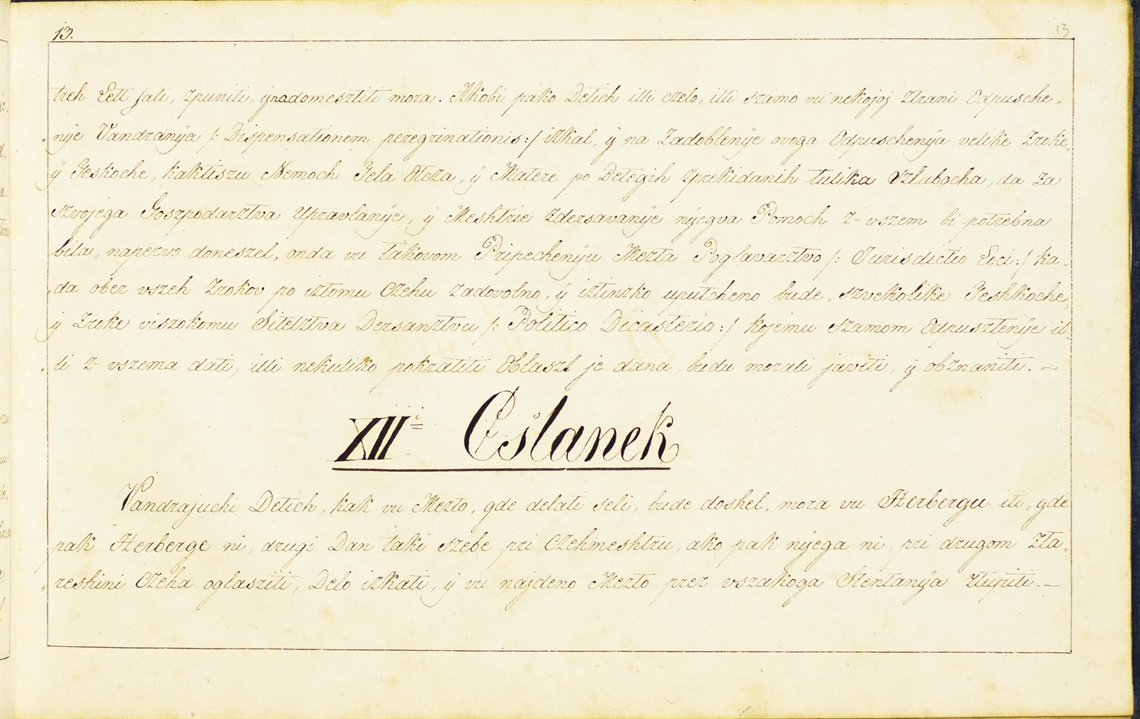 13.
13
treh Lett fali, zpuniti, y nadomesztiti mora. Akobi pako Detich illi czelo, illi szamo vu nekojoj ztrani Odpusche-
nije Vandranya /: Dispensationem peregrinationis:/ iskal, y na Zadoblenije ovoga Odpuschenya velike Zroke,
y Teskoche, kaktiszu Nemoch Tela Otcza, y Matere po Detegih zprekidanih tulika Vzlubocha, da za
szvojega Goszpodarztva Upravlanije, y Meshtrie Zdersavanije nyegva Pomoch z-vszem bi potrebna
bila, napervo doneszel, onda vu takovom Pripechenyu Mezta Poglavarztvo /: Jurisdictio Loci:/ ka-
da ober vszeh Zrokov po iztomu Czehu zadovolno, y iztinzko uputcheno bude, szvekolike Teshkoche,
y Zroke viszokomu Sitelztva Dersanztvu /: Politico Dicasterio:/ kojemu szamom Odpusztenije il-
li z-vszema dati, illi nekuliko pokratiti Oblaszt je dana, budu morali javiti, y obznaniti. –
XII<sup>i</sup> Cslanek
Vandrajuchi Detich, kak vu Mezto, gde delati seli, bude doshel, mora vu Herbergu iti, gde
pak Herberge ni, drugi Dan taki szebe pri Czehmeshtru, ako pak nyega ni, pri drugom Zta-
reshini Czeha oglasziti, Delo izkati, y vu najdeno Mezto prez vszakoga Stentanya ztupiti. –